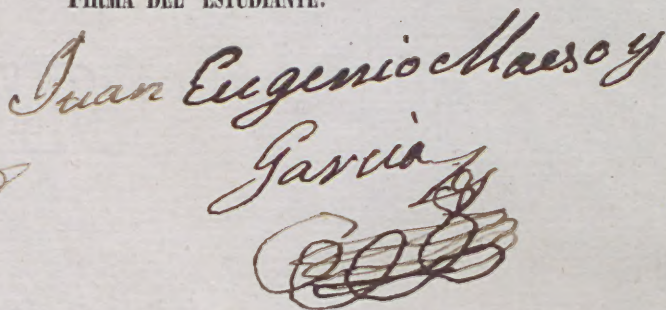 FIRMA DEL ESTUDIANTE.
Juan Eugenio Maeso y
Garcia